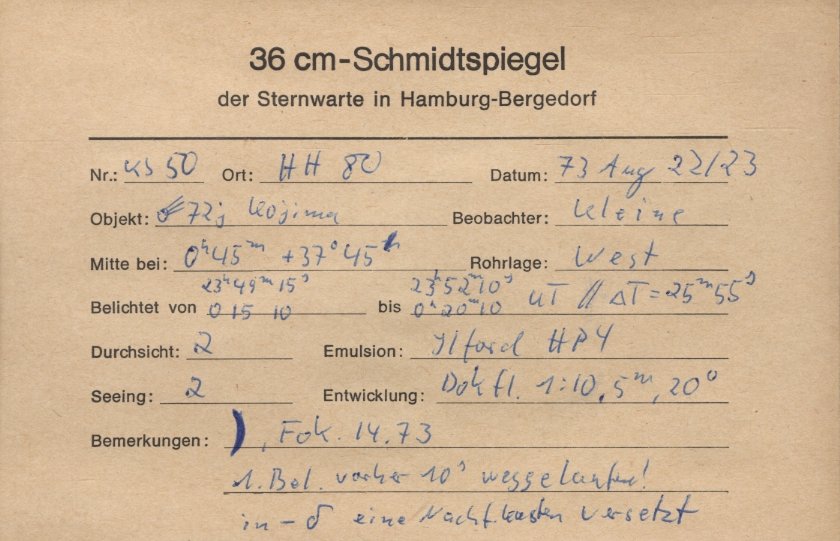 36 cm-Schmidtspiegel
der Sternwarte in Hamburg-Bergedorf
Nr.: KS 50 Ort: HH 80 Datum: 73 Aug 22/23
Objekt: 72j Kojima Beobachter: Kleine
Mitte bei: 0ʰ45ᵐ +37°45' Rohrlage: West
23ʰ49ᵐ15ˢ 23ʰ52ᵐ10ˢ
Belichtet von 0 15 10 bis 0ʰ20ᵐ10 UT // ΔT = 25ᵐ55ˢ
Durchsicht: 2 Emulsion: Ilford HP4
Seeing: 2 Entwicklung: Dokfl. 1:10, 5ᵐ, 20°
Bemerkungen: ), Fok. 14.73
1. Bel. vorher 10ˢ weggelaufen!
in -δ eine versetzt